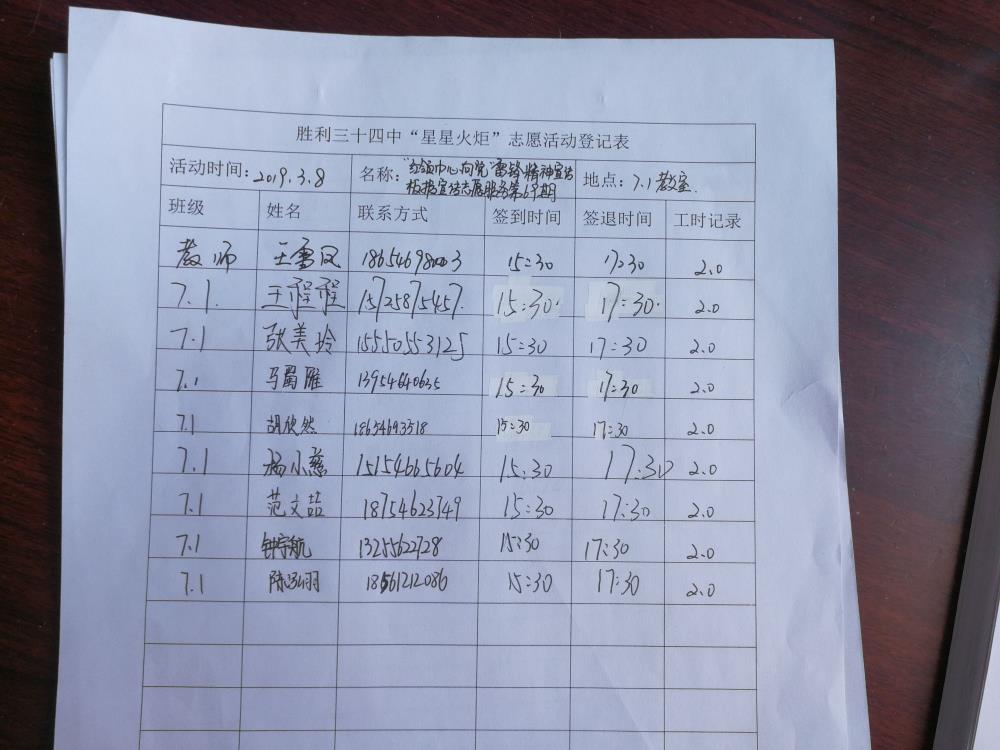 胜利三十四中“星星火炬”志愿活动登记表
活动时间:2019.3.8 名称:“红领巾心向党”雷锋精神宣传 地点:7.1教室.
板报宣传志愿服务第69期
班级 姓名 联系方式 签到时间 签退时间 工时记录
教师 王雪凤 15:30 17:30 2.0
7.1. 王程程 15725875457. 15:30. 17:30. 2.0
7.1 张美玲 15550553125 15:30 17:30 2.0
7.1 马蜀雁 13954640635 15:30 17:30 2.0
7.1 胡欣然 18654693518 15:30 17:30 2.0
7.1 杨小慈 15154665604 15:30 17:30 2.0
7.1 范文喆 18754623749 15:30 17:30 2.0
7.1 钟宇航 13255622728 15:30 17:30 2.0
7.1 陈泓羽 18561212086 15:30 17:30 2.0